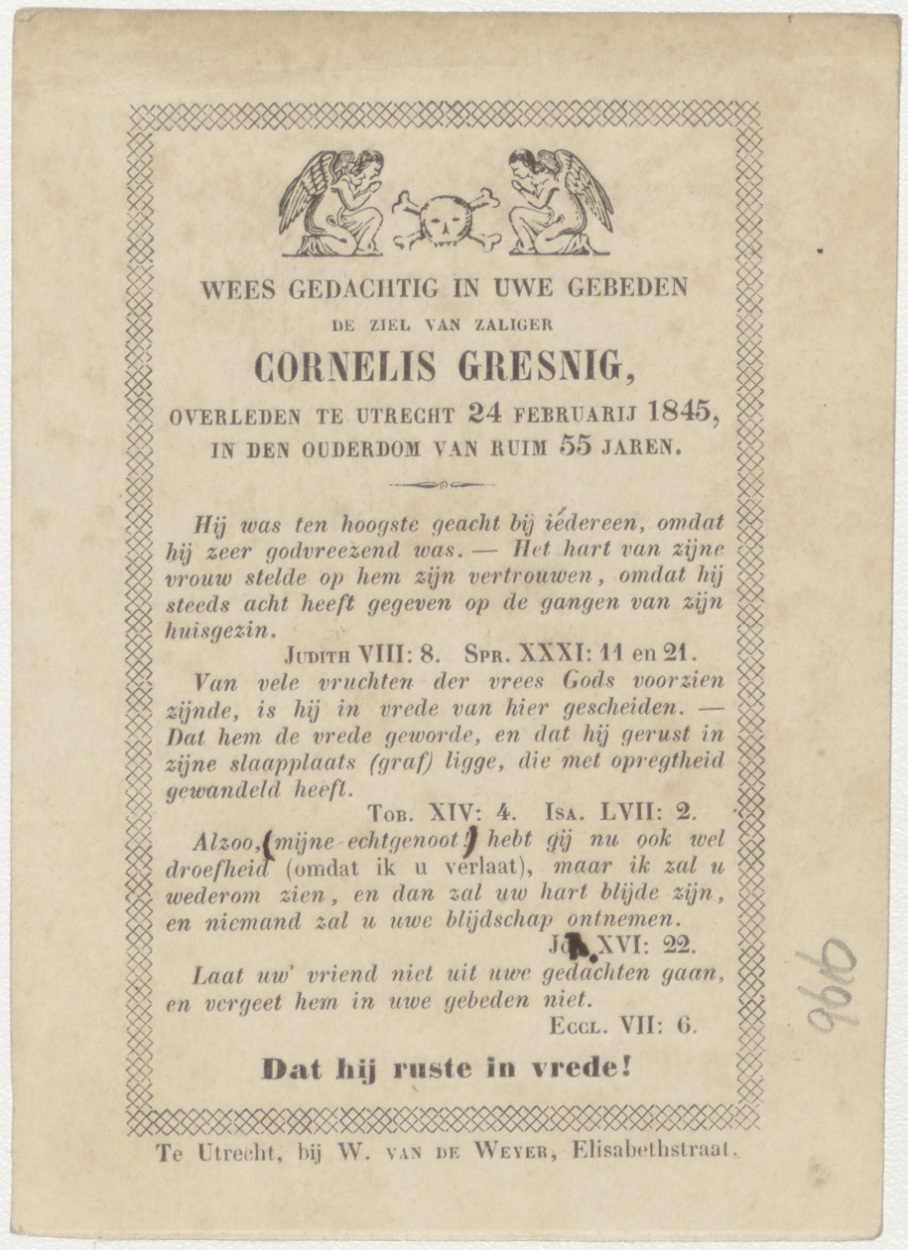 WEES GEDACHTIG IN UWE GEBEDEN
DE ZIEL VAN ZALIGER
CORNELIS GRESNIG,
OVERLEDEN TE UTRECHT 24 FEBRUARIJ 1845,
IN DEN OUDERDOM VAN RUIM 55 JAREN.
Hij was ten hoogste geacht bij iédereen, omdat
hij zeer godvreezend was. — Het hart van zijne
vrouw stelde op hem zijn vertrouwen, omdat hij
steeds acht heeft gegeven op de gangen van zijn
huisgezin.
JUDITH VIII: 8. SPR. XXXI: 11 en 21.
Van vele vruchten der vrees Gods voorzien
zijnde, is hij in vrede van hier gescheiden. —
Dat hem de vrede geworde, en dat hij gerust in
zijne slaapplaats (graf) ligge, die met opregtheid
gewandeld heeft.
TOB. XIV: 4. ISA. LVII: 2.
Alzoo, (mijne echtgenoot!) hebt gij nu ook wel
droefheid (omdat ik u verlaat), maar ik zal u
wederom zien, en dan zal uw hart blijde zijn,
en niemand zal u uwe blijdschap ontnemen.
XVI: 22.
Laat uw' vriend niet uit uwe gedachten gaan,
en vergeet hem in uwe gebeden niet.
ECCL. VII: 6.
Dat hij ruste in vrede!
Te Utrecht, bij W. VAN DE WEYER, Elisabethstraat.